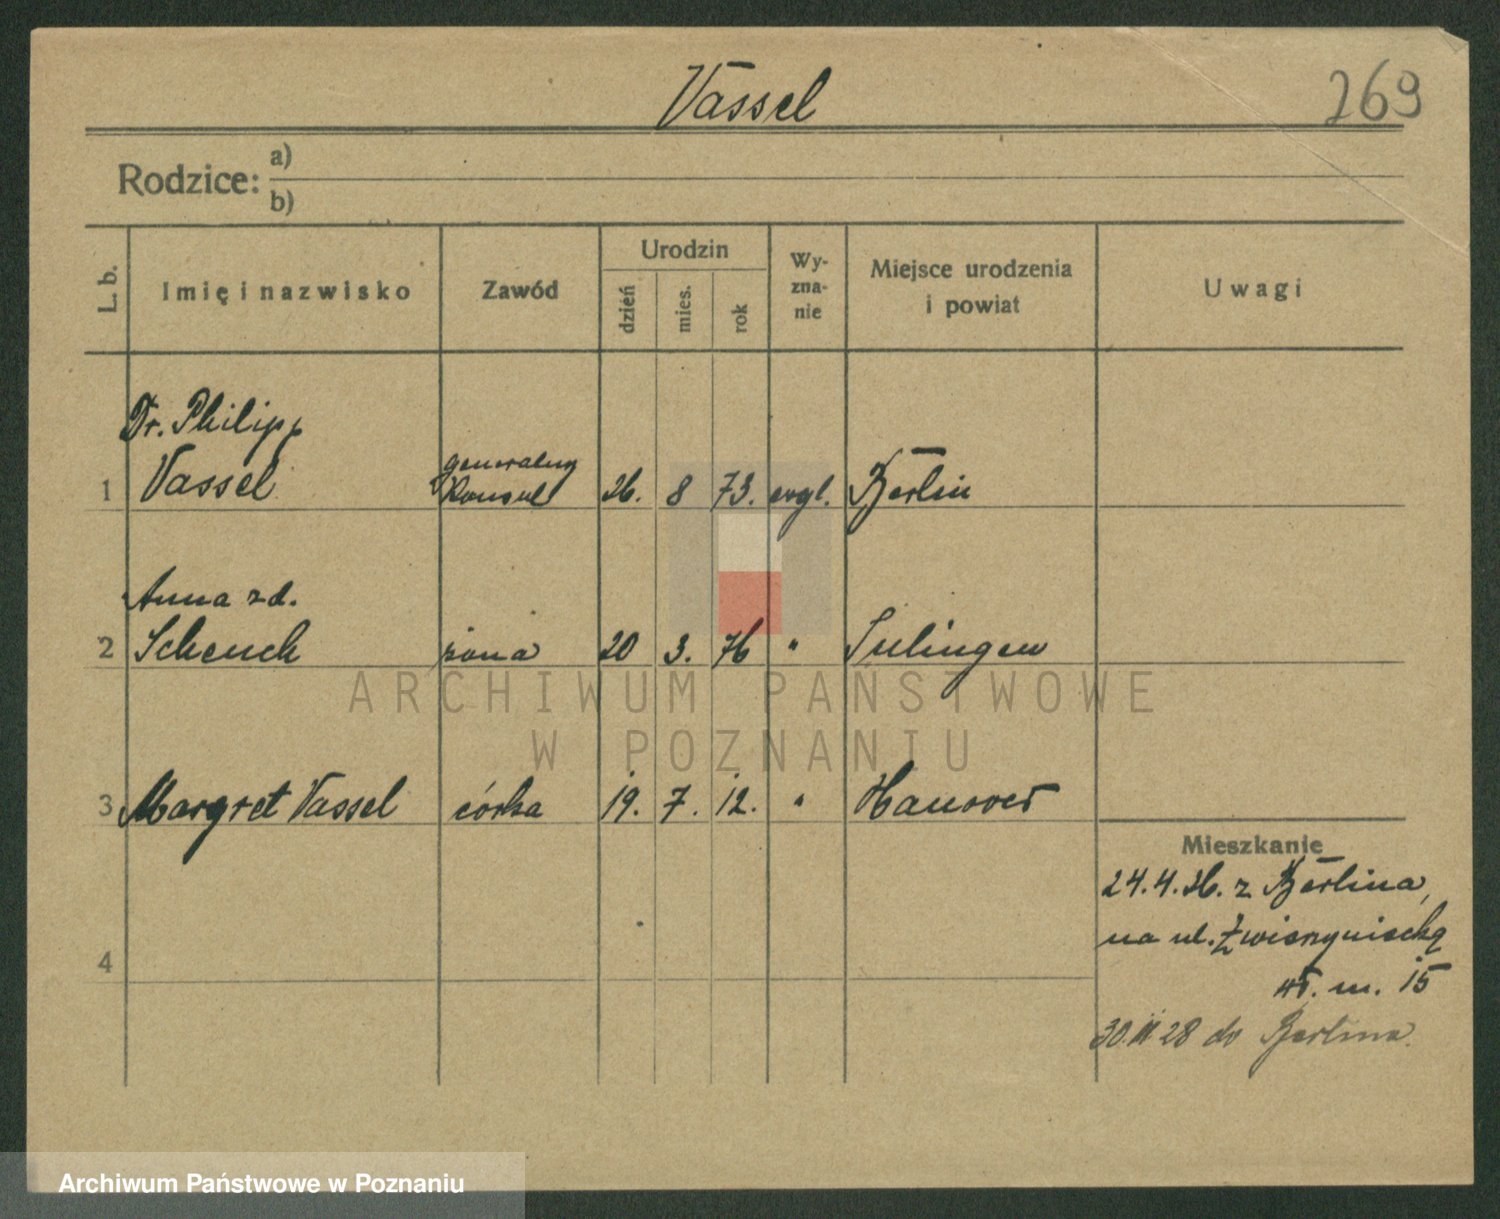 Vassel
269
Rodzice:
a)
b)
L. b.
Imię i nazwisko
Zawód
Urodzin
dzień
mies.
rok
Wy-
zna-
nie
Miejsce urodzenia
i powiat
Uwagi
Dr. Philipp
1 Vassel generalny Konsul 26. 8 73. evgl. Berlin
Anna zd.
2 Schench żona 20 3. 76 " Sulingen
3 Margret Vassel córka 19. 7. 12. " Hanover
4
Mieszkanie
24.4.26. z Berlina,
na ul. Zwierzyniecką
m. 15
30.III 28 do Berlina.
ARCHIWUM PAŃSTWOWE
W POZNANIU
Archiwum Państwowe w Poznaniu